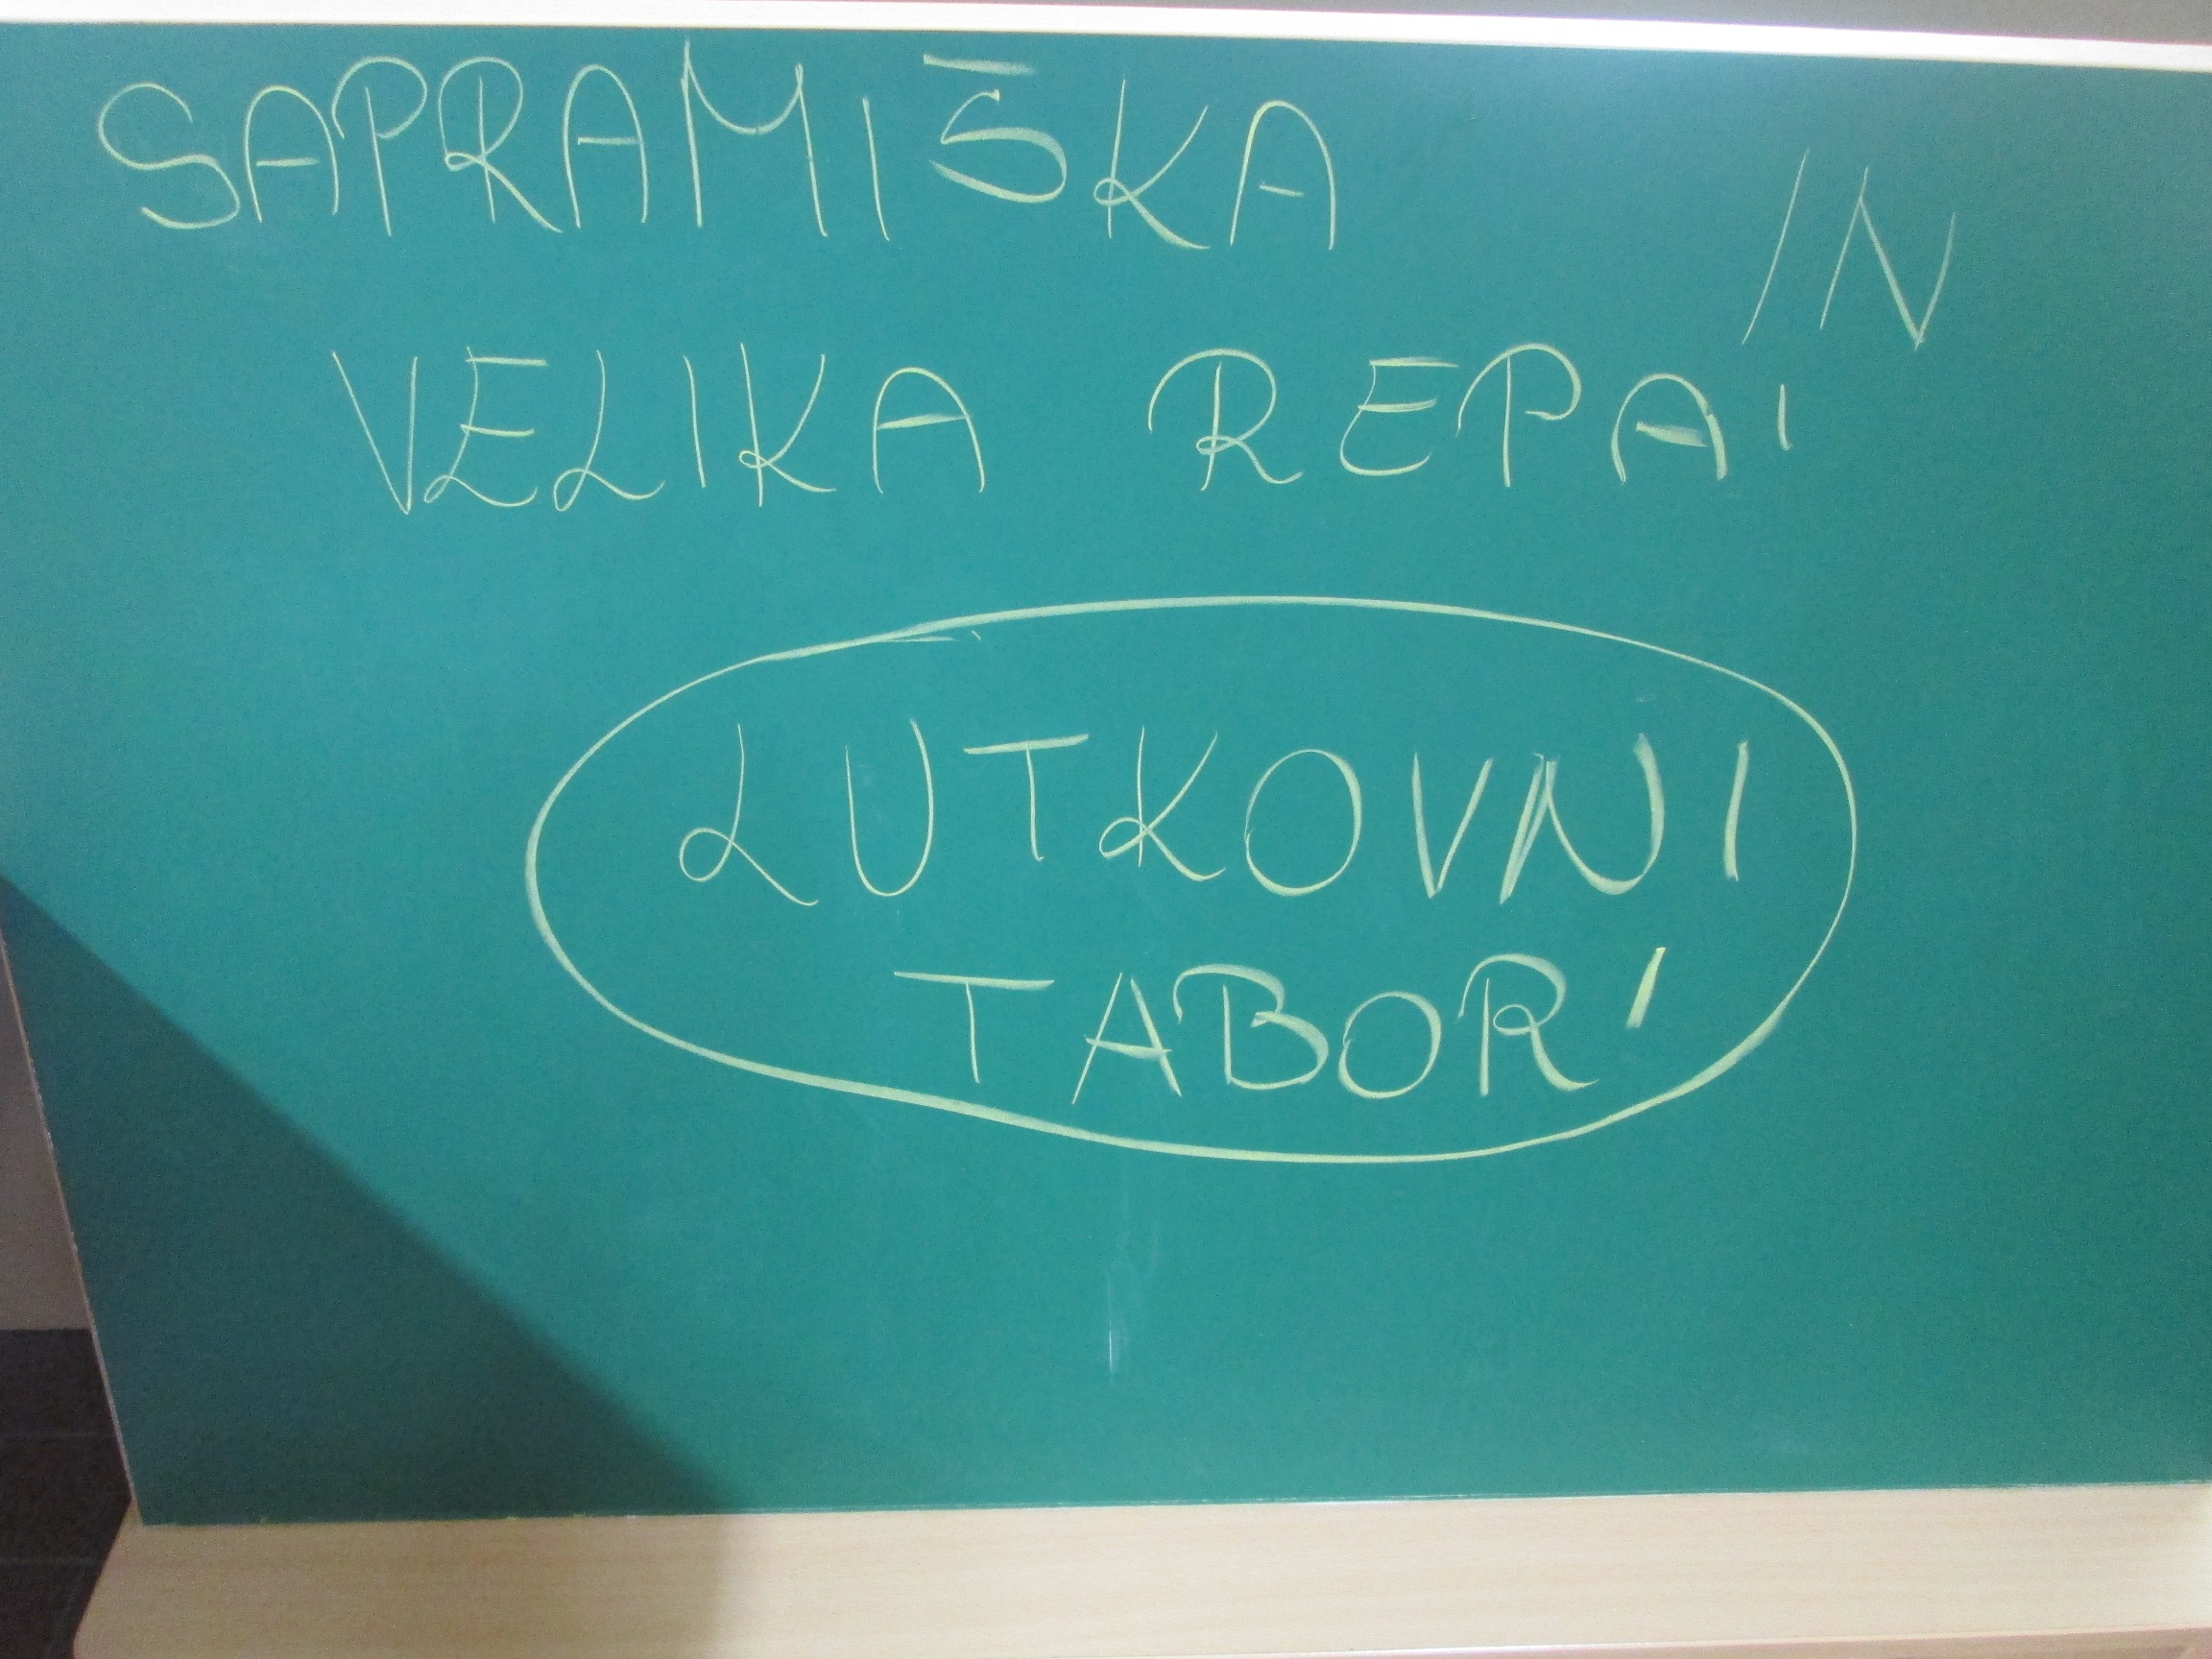 SAPRAMIŠKA IN
VELIKA REPA'
LUTKOVNI
TABOR'